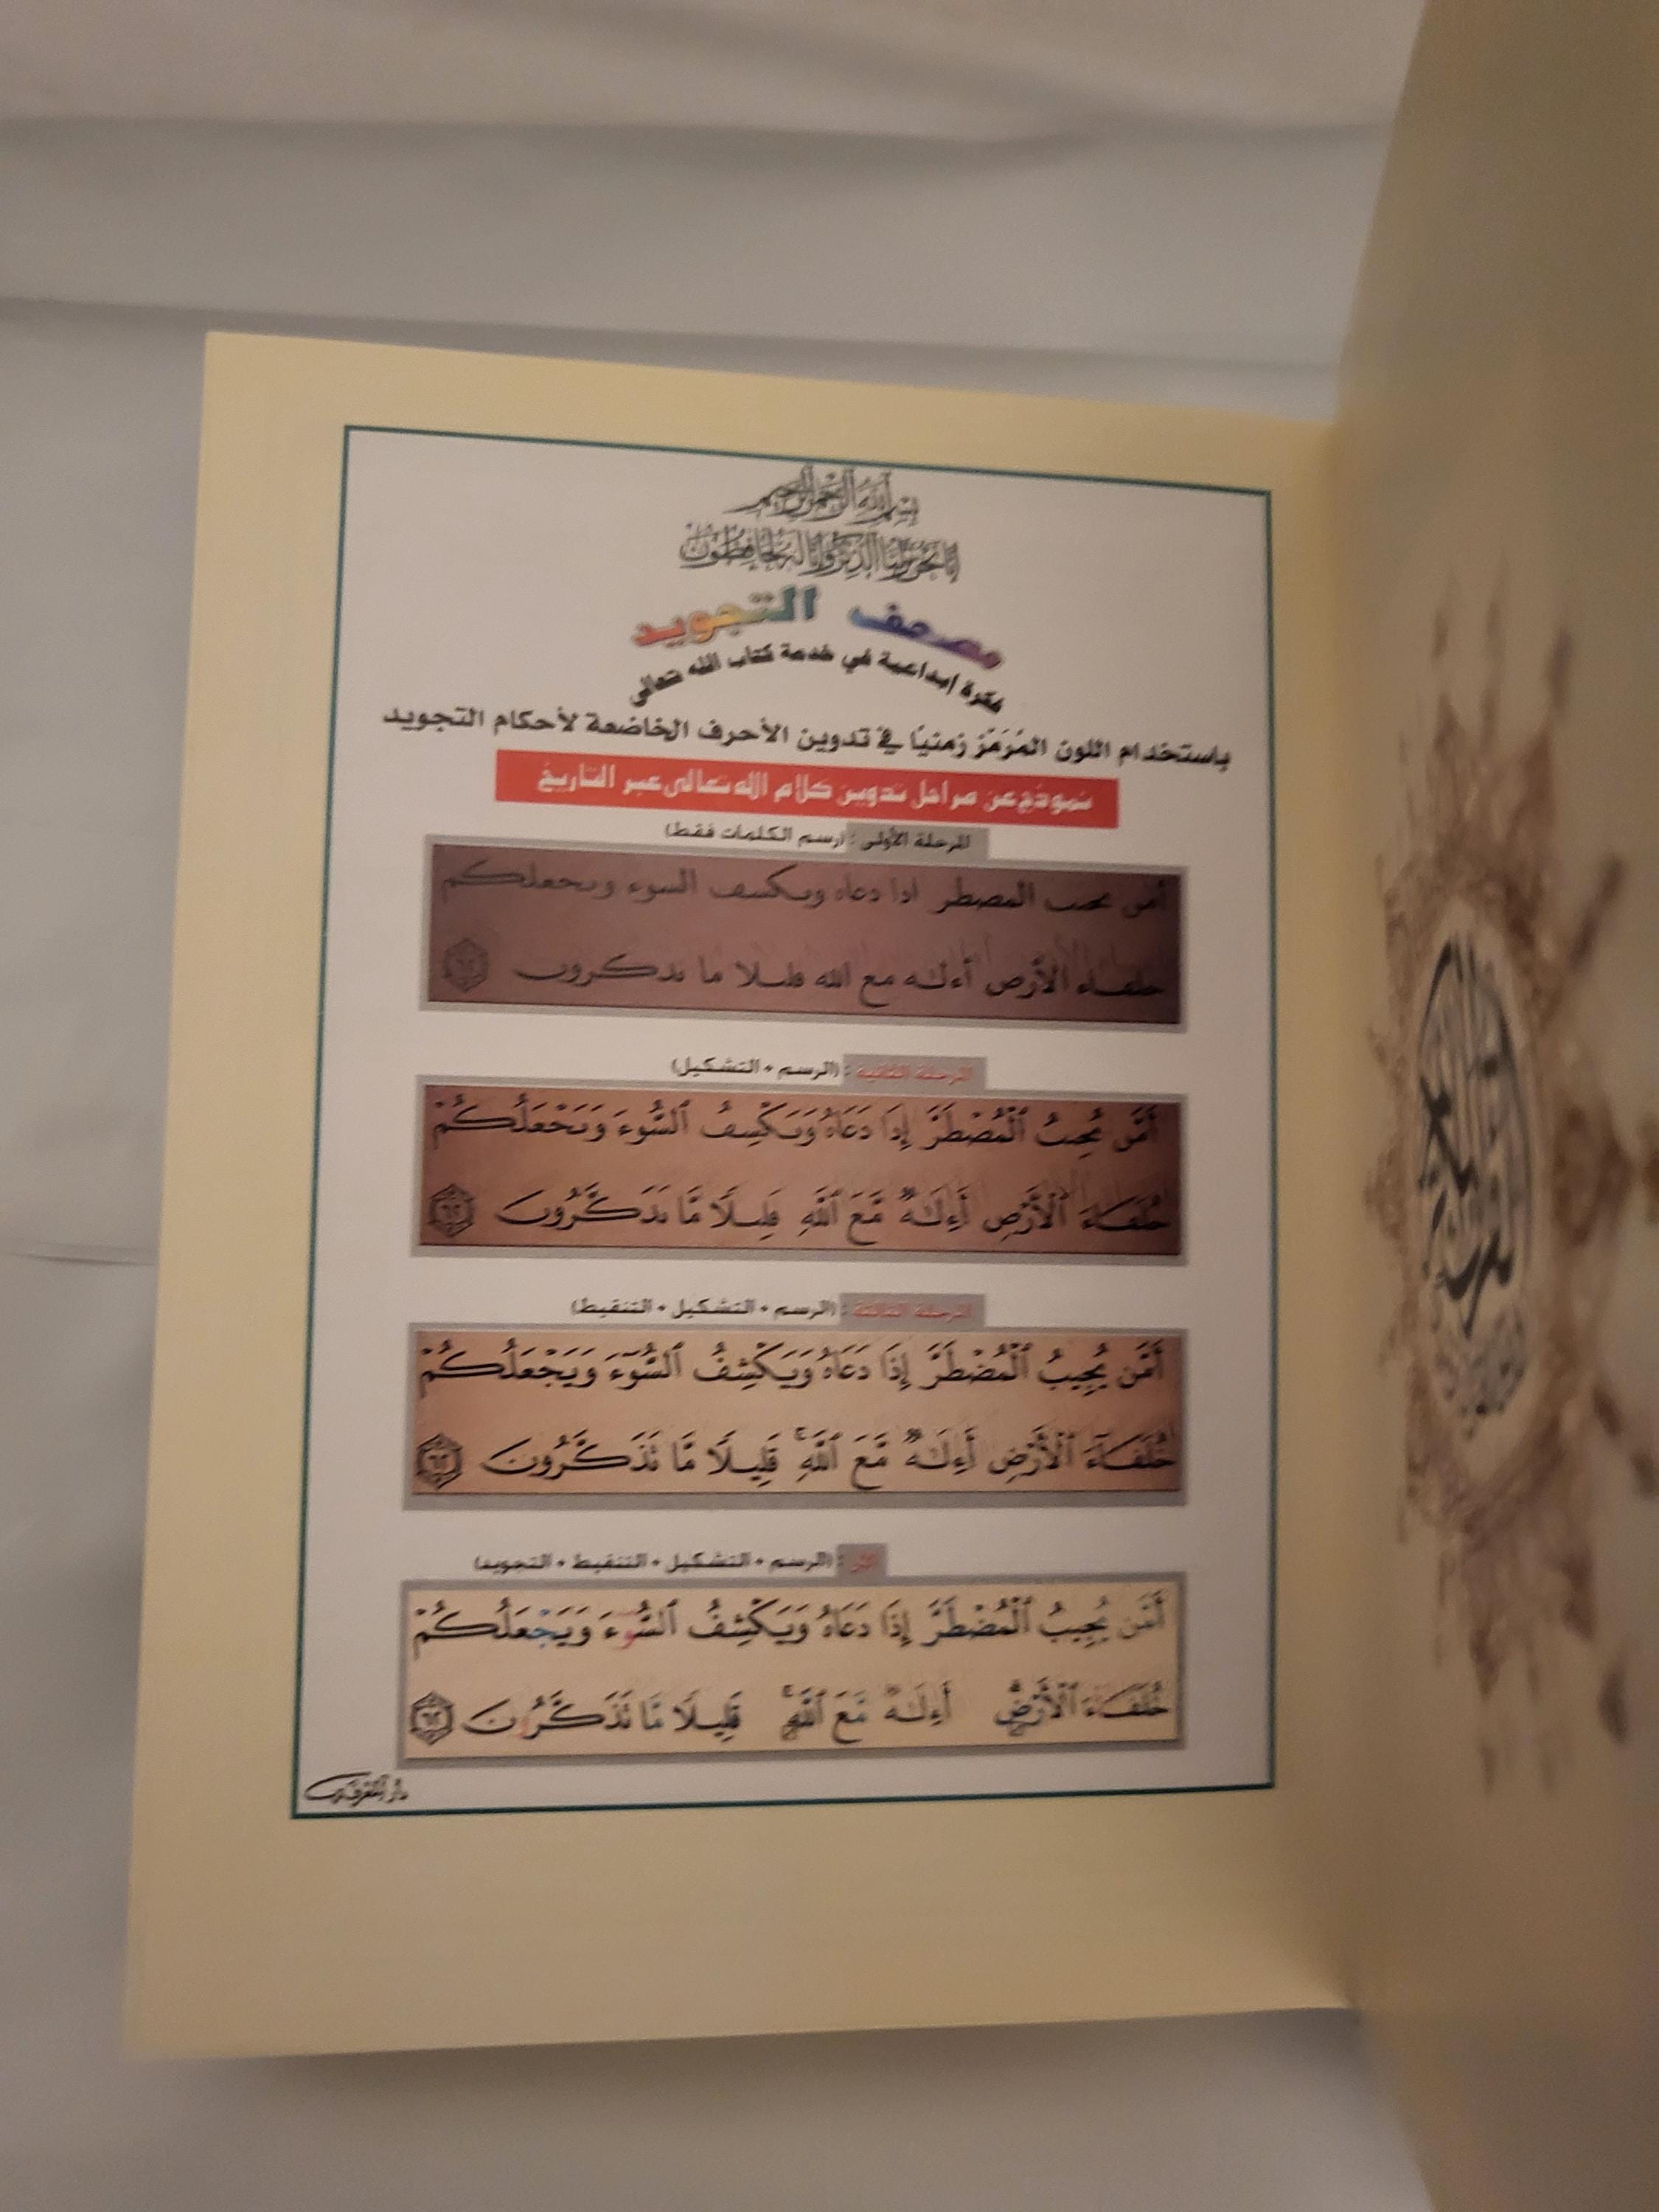 بسم الله الرحمن الرحيم
إنا نحن نزلنا الذكر وإنا له لحافظون
مصحف التجويد
فكرة إبداعية في خدمة كتاب الله تعالى
باستخدام اللون المُرَمَّز زمنيًا في تدوين الأحرف الخاضعة لأحكام التجويد
نموذج عن مراحل تدوين كلام الله تعالى عبر التاريخ
المرحلة الأولى : (رسم الكلمات فقط)
أمں ٮحٮٮ المصطر ادا دعاه وٮكسڡ السوء وٮحعلكم
حلڡاء الأرص أءلـه مع الله ڡلٮلا ما ٮدكروں ٦٢
المرحلة الثانية : (الرسم + التشكيل)
أَمَّں ٮُحِٮٮُ ٱلْمُصْطَرَّ إِدَا دَعَاهُ وَٮَكْسِڡُ ٱلسُّوءَ وَٮَحْعَلُكُمْ
حُلَڡَاءَ ٱلْأَرْصِ أَءِلَٰهٌ مَّعَ ٱللَّهِ ڡَلِٮلًا مَّا ٮَدَكَّرُوںَ ٦٢
المرحلة الثالثة : (الرسم + التشكيل + التنقيط)
أَمَّن يُجِيبُ ٱلْمُضْطَرَّ إِذَا دَعَاهُ وَيَكْشِفُ ٱلسُّوٓءَ وَيَجْعَلُكُمْ
خُلَفَآءَ ٱلْأَرْضِ أَءِلَٰهٌ مَّعَ ٱللَّهِ ۚ قَلِيلًا مَّا تَذَكَّرُونَ ٦٢
الآن : (الرسم + التشكيل + التنقيط + التجويد)
أَمَّن يُجِيبُ ٱلْمُضْطَرَّ إِذَا دَعَاهُ وَيَكْشِفُ ٱلسُّوٓءَ وَيَجْعَلُكُمْ
خُلَفَآءَ ٱلْأَرْضِ ۗ أَءِلَٰهٌ مَّعَ ٱللَّهِ ۚ قَلِيلًا مَّا تَذَكَّرُونَ ٦٢
دار المعرفة